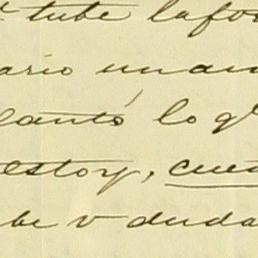 tube la for
ario un an
lantó lo q
estoy, cuen
be v duda